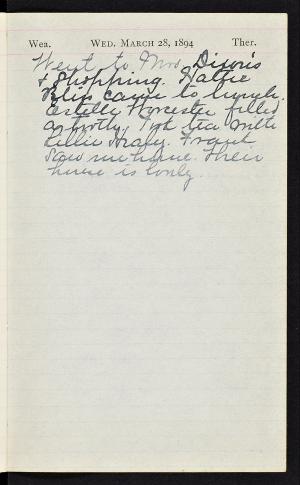 Wea. WED. MARCH 28, 1894 Ther.
Went to Mrs. Dixon's
& Shopping. Hattie
came to lunch.
Estelle Forcester filled
a tooth. Took tea with
Lillie . Frank
saw me home. Their
house is lovely.